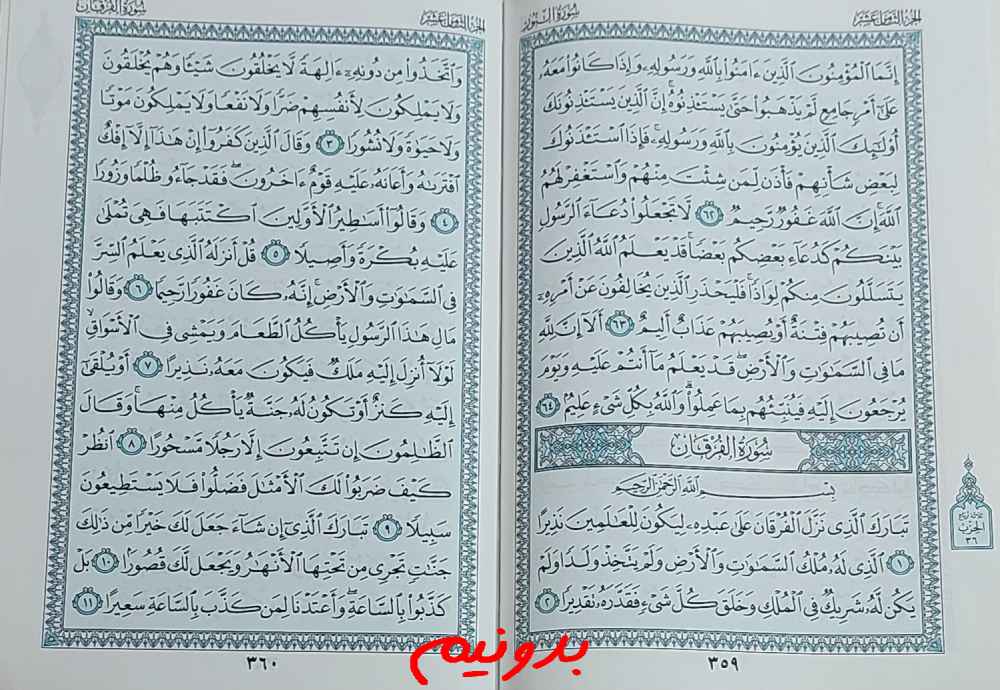 الجزء الثامن عشر
سورة النور
إِنَّمَا الْمُؤْمِنُونَ الَّذِينَ ءَامَنُوا بِاللَّهِ وَرَسُولِهِ وَإِذَا كَانُوا مَعَهُ
عَلَىٰ أَمْرٍ جَامِعٍ لَّمْ يَذْهَبُوا حَتَّىٰ يَسْتَـْٔذِنُوهُ إِنَّ الَّذِينَ يَسْتَـْٔذِنُونَكَ
أُولَـٰئِكَ الَّذِينَ يُؤْمِنُونَ بِاللَّهِ وَرَسُولِهِ فَإِذَا اسْتَـْٔذَنُوكَ
لِبَعْضِ شَأْنِهِمْ فَأْذَن لِّمَن شِئْتَ مِنْهُمْ وَاسْتَغْفِرْ لَهُمُ
اللَّهَ إِنَّ اللَّهَ غَفُورٌ رَّحِيمٌ ٦٢ لَّا تَجْعَلُوا دُعَاءَ الرَّسُولِ
بَيْنَكُمْ كَدُعَاءِ بَعْضِكُم بَعْضًا قَدْ يَعْلَمُ اللَّهُ الَّذِينَ
يَتَسَلَّلُونَ مِنكُمْ لِوَاذًا فَلْيَحْذَرِ الَّذِينَ يُخَالِفُونَ عَنْ أَمْرِهِ
أَن تُصِيبَهُمْ فِتْنَةٌ أَوْ يُصِيبَهُمْ عَذَابٌ أَلِيمٌ ٦٣ أَلَا إِنَّ لِلَّهِ
مَا فِي السَّمَـٰوَٰتِ وَالْأَرْضِ قَدْ يَعْلَمُ مَا أَنتُمْ عَلَيْهِ وَيَوْمَ
يُرْجَعُونَ إِلَيْهِ فَيُنَبِّئُهُم بِمَا عَمِلُوا وَاللَّهُ بِكُلِّ شَيْءٍ عَلِيمٌ ٦٤
سُورَةُ الْفُرْقَانِ
بِسْمِ اللَّهِ الرَّحْمَـٰنِ الرَّحِيمِ
تَبَارَكَ الَّذِي نَزَّلَ الْفُرْقَانَ عَلَىٰ عَبْدِهِ لِيَكُونَ لِلْعَـٰلَمِينَ نَذِيرًا
١ الَّذِي لَهُ مُلْكُ السَّمَـٰوَٰتِ وَالْأَرْضِ وَلَمْ يَتَّخِذْ وَلَدًا وَلَمْ
يَكُن لَّهُ شَرِيكٌ فِي الْمُلْكِ وَخَلَقَ كُلَّ شَيْءٍ فَقَدَّرَهُ تَقْدِيرًا ٢
الحزب
٣٦
٣٥٩
الجزء الثامن عشر
سورة الفرقان
وَاتَّخَذُوا مِن دُونِهِ ءَالِهَةً لَّا يَخْلُقُونَ شَيْـًٔا وَهُمْ يُخْلَقُونَ
وَلَا يَمْلِكُونَ لِأَنفُسِهِمْ ضَرًّا وَلَا نَفْعًا وَلَا يَمْلِكُونَ مَوْتًا
وَلَا حَيَوٰةً وَلَا نُشُورًا ٣ وَقَالَ الَّذِينَ كَفَرُوا إِنْ هَـٰذَا إِلَّا إِفْكٌ
افْتَرَىٰهُ وَأَعَانَهُ عَلَيْهِ قَوْمٌ ءَاخَرُونَ فَقَدْ جَاءُو ظُلْمًا وَزُورًا
٤ وَقَالُوا أَسَـٰطِيرُ الْأَوَّلِينَ اكْتَتَبَهَا فَهِيَ تُمْلَىٰ
عَلَيْهِ بُكْرَةً وَأَصِيلًا ٥ قُلْ أَنزَلَهُ الَّذِي يَعْلَمُ السِّرَّ
فِي السَّمَـٰوَٰتِ وَالْأَرْضِ إِنَّهُ كَانَ غَفُورًا رَّحِيمًا ٦ وَقَالُوا
مَالِ هَـٰذَا الرَّسُولِ يَأْكُلُ الطَّعَامَ وَيَمْشِي فِي الْأَسْوَاقِ
لَوْلَا أُنزِلَ إِلَيْهِ مَلَكٌ فَيَكُونَ مَعَهُ نَذِيرًا ٧ أَوْ يُلْقَىٰ
إِلَيْهِ كَنزٌ أَوْ تَكُونُ لَهُ جَنَّةٌ يَأْكُلُ مِنْهَا وَقَالَ
الظَّـٰلِمُونَ إِن تَتَّبِعُونَ إِلَّا رَجُلًا مَّسْحُورًا ٨ انظُرْ
كَيْفَ ضَرَبُوا لَكَ الْأَمْثَـٰلَ فَضَلُّوا فَلَا يَسْتَطِيعُونَ
سَبِيلًا ٩ تَبَارَكَ الَّذِي إِن شَاءَ جَعَلَ لَكَ خَيْرًا مِّن ذَٰلِكَ
جَنَّـٰتٍ تَجْرِي مِن تَحْتِهَا الْأَنْهَـٰرُ وَيَجْعَل لَّكَ قُصُورًا ١٠ بَلْ
كَذَّبُوا بِالسَّاعَةِ وَأَعْتَدْنَا لِمَن كَذَّبَ بِالسَّاعَةِ سَعِيرًا ١١
٣٦٠
بدونیم